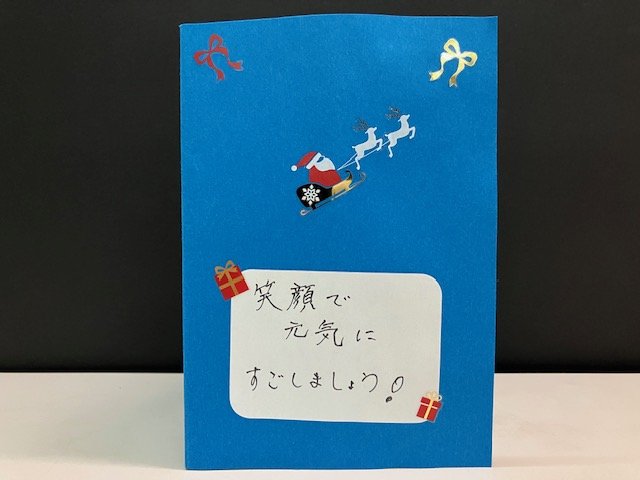 笑顔で
元気に
すごしましょう!